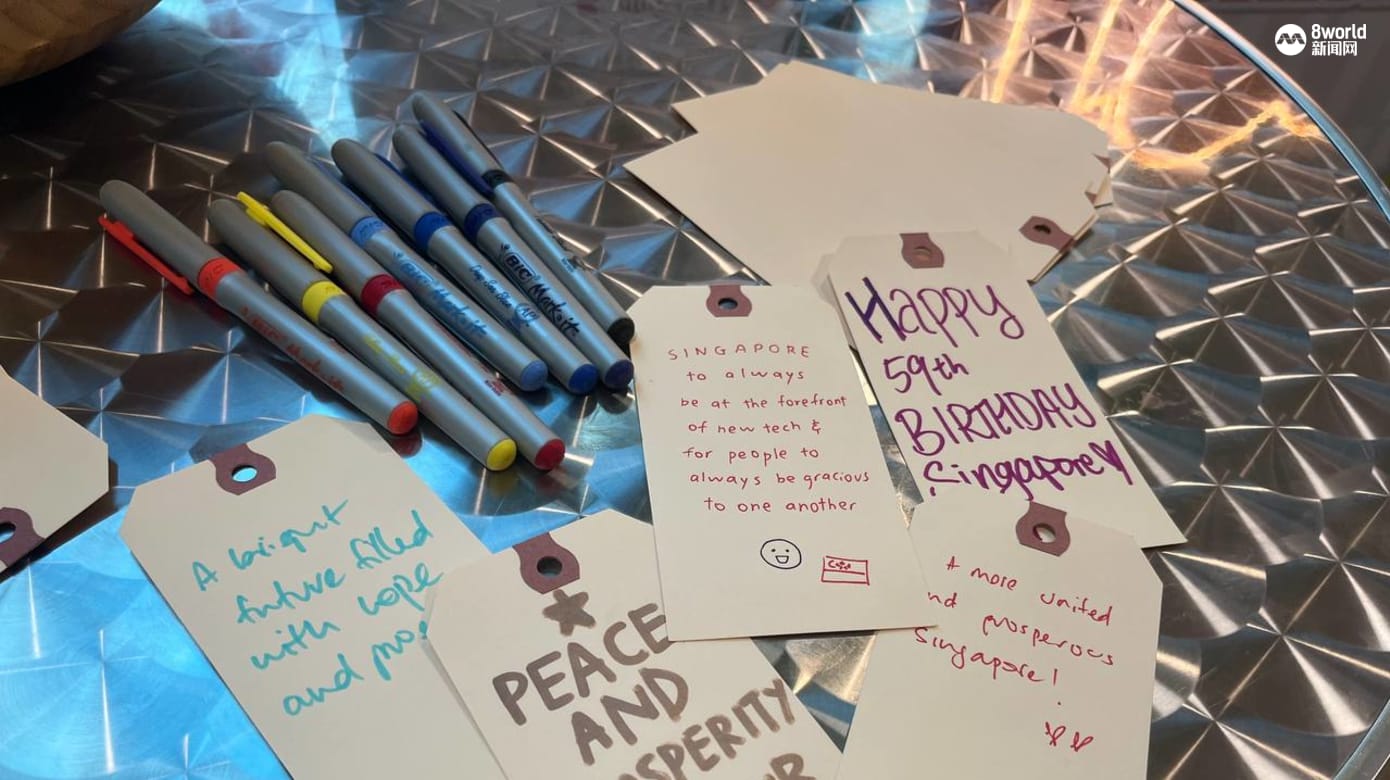 8world
新闻网
BIC Mark-it
SINGAPORE
to always
be at the forefront
of new tech &
for people to
always be gracious
to one another
HAPPY
59th
BIRTHDAY
Singapore
A bright
future filled
with hope
and
PEACE
AND
A more united
prosperous
Singapore!